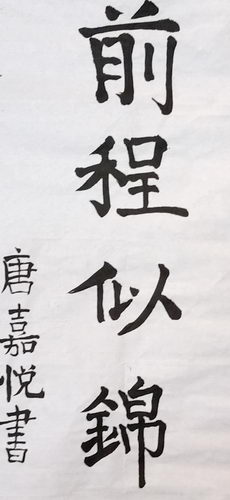 前程似錦
唐嘉悅書